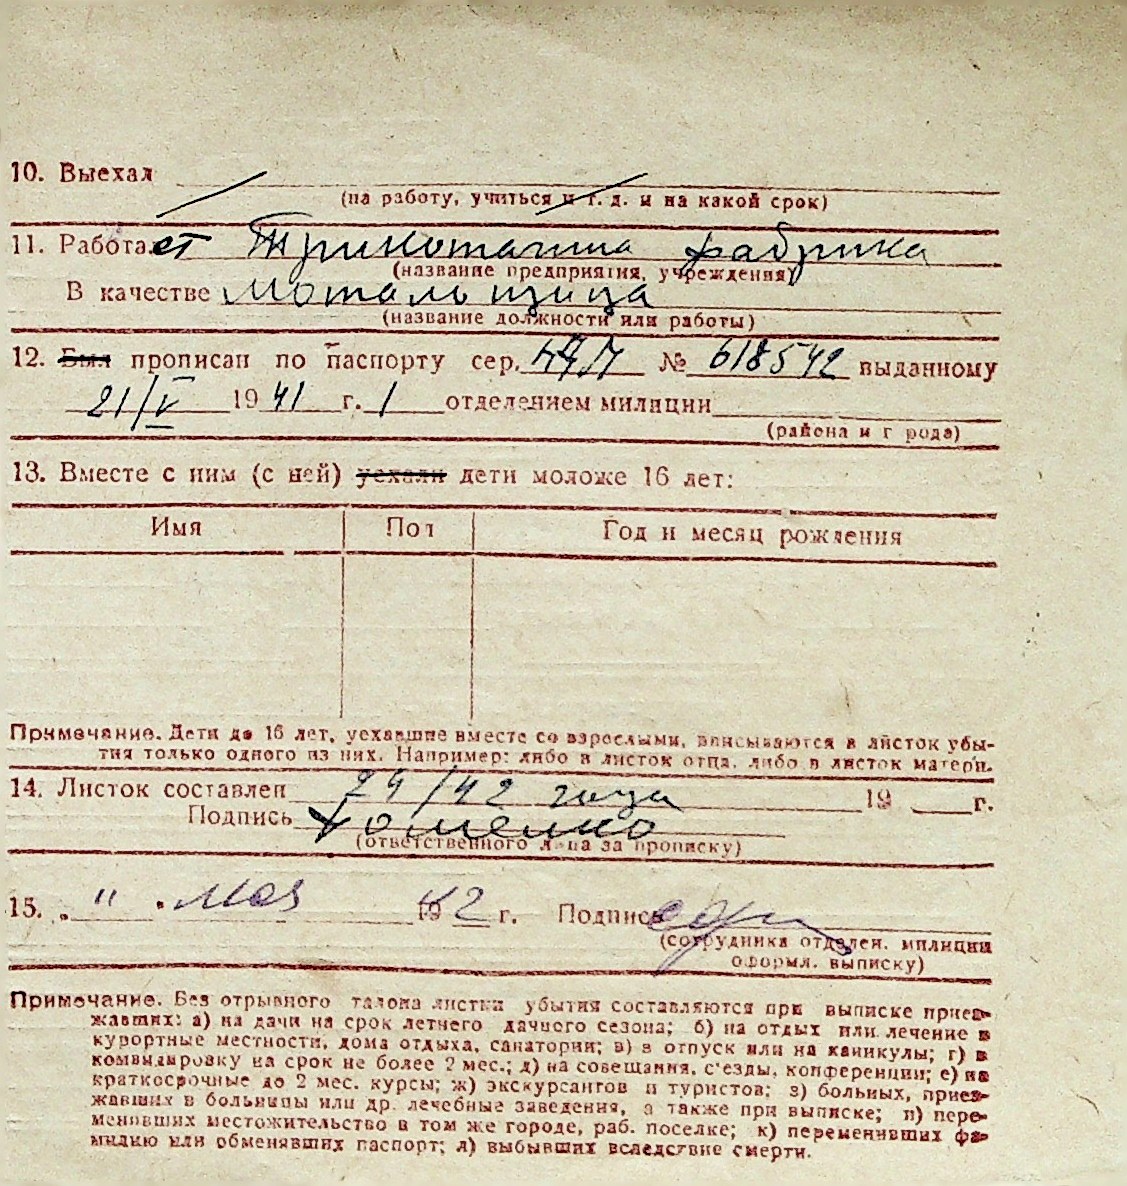 10. Выехал
(на работу, учиться и т. д. и на какой срок)
11. Работает Трикотажна фабрика
(название предприятия, учреждения)
В качестве мотальщица
(название должности или работы)
12. Был прописан по паспорту сер. № 618542 выданному
21/V 1941 г. 1 отделением милиции
(района и г рода)
13. Вместе с ним (с ней) уехали дети моложе 16 лет:
Имя Пол Год и месяц рождения
Примечание. Дети до 16 лет, уехавшие вместе со взрослыми, вписываются в листок убы-
тия только одного из них. Например: либо в листок отца, либо в листок матери.
14. Листок составлен 24/42 года 19 г.
Подпись Хоменко
(ответственного лица за прописку)
15. „ " мая 1942 г. Подпись
(сотрудника отделен. милиции
оформл. выписку)
Примечание. Без отрывного талона листки убытия составляются при выписке приез-
жавших: а) на дачи на срок летнего дачного сезона; б) на отдых или лечение в
курортные местности, дома отдыха, санатории; в) в отпуск или на каникулы; г) в
командировку на срок не более 2 мес.; д) на совещания, с'езды, конференции; е) на
краткосрочные до 2 мес. курсы; ж) экскурсантов и туристов; з) больных, приез-
жавших в больницы или др. лечебные заведения, а также при выписке; и) пере-
менивших местожительство в том же городе, раб. поселке; к) переменивших фа-
милию или обменявших паспорт; л) выбывших вследствие смерти.